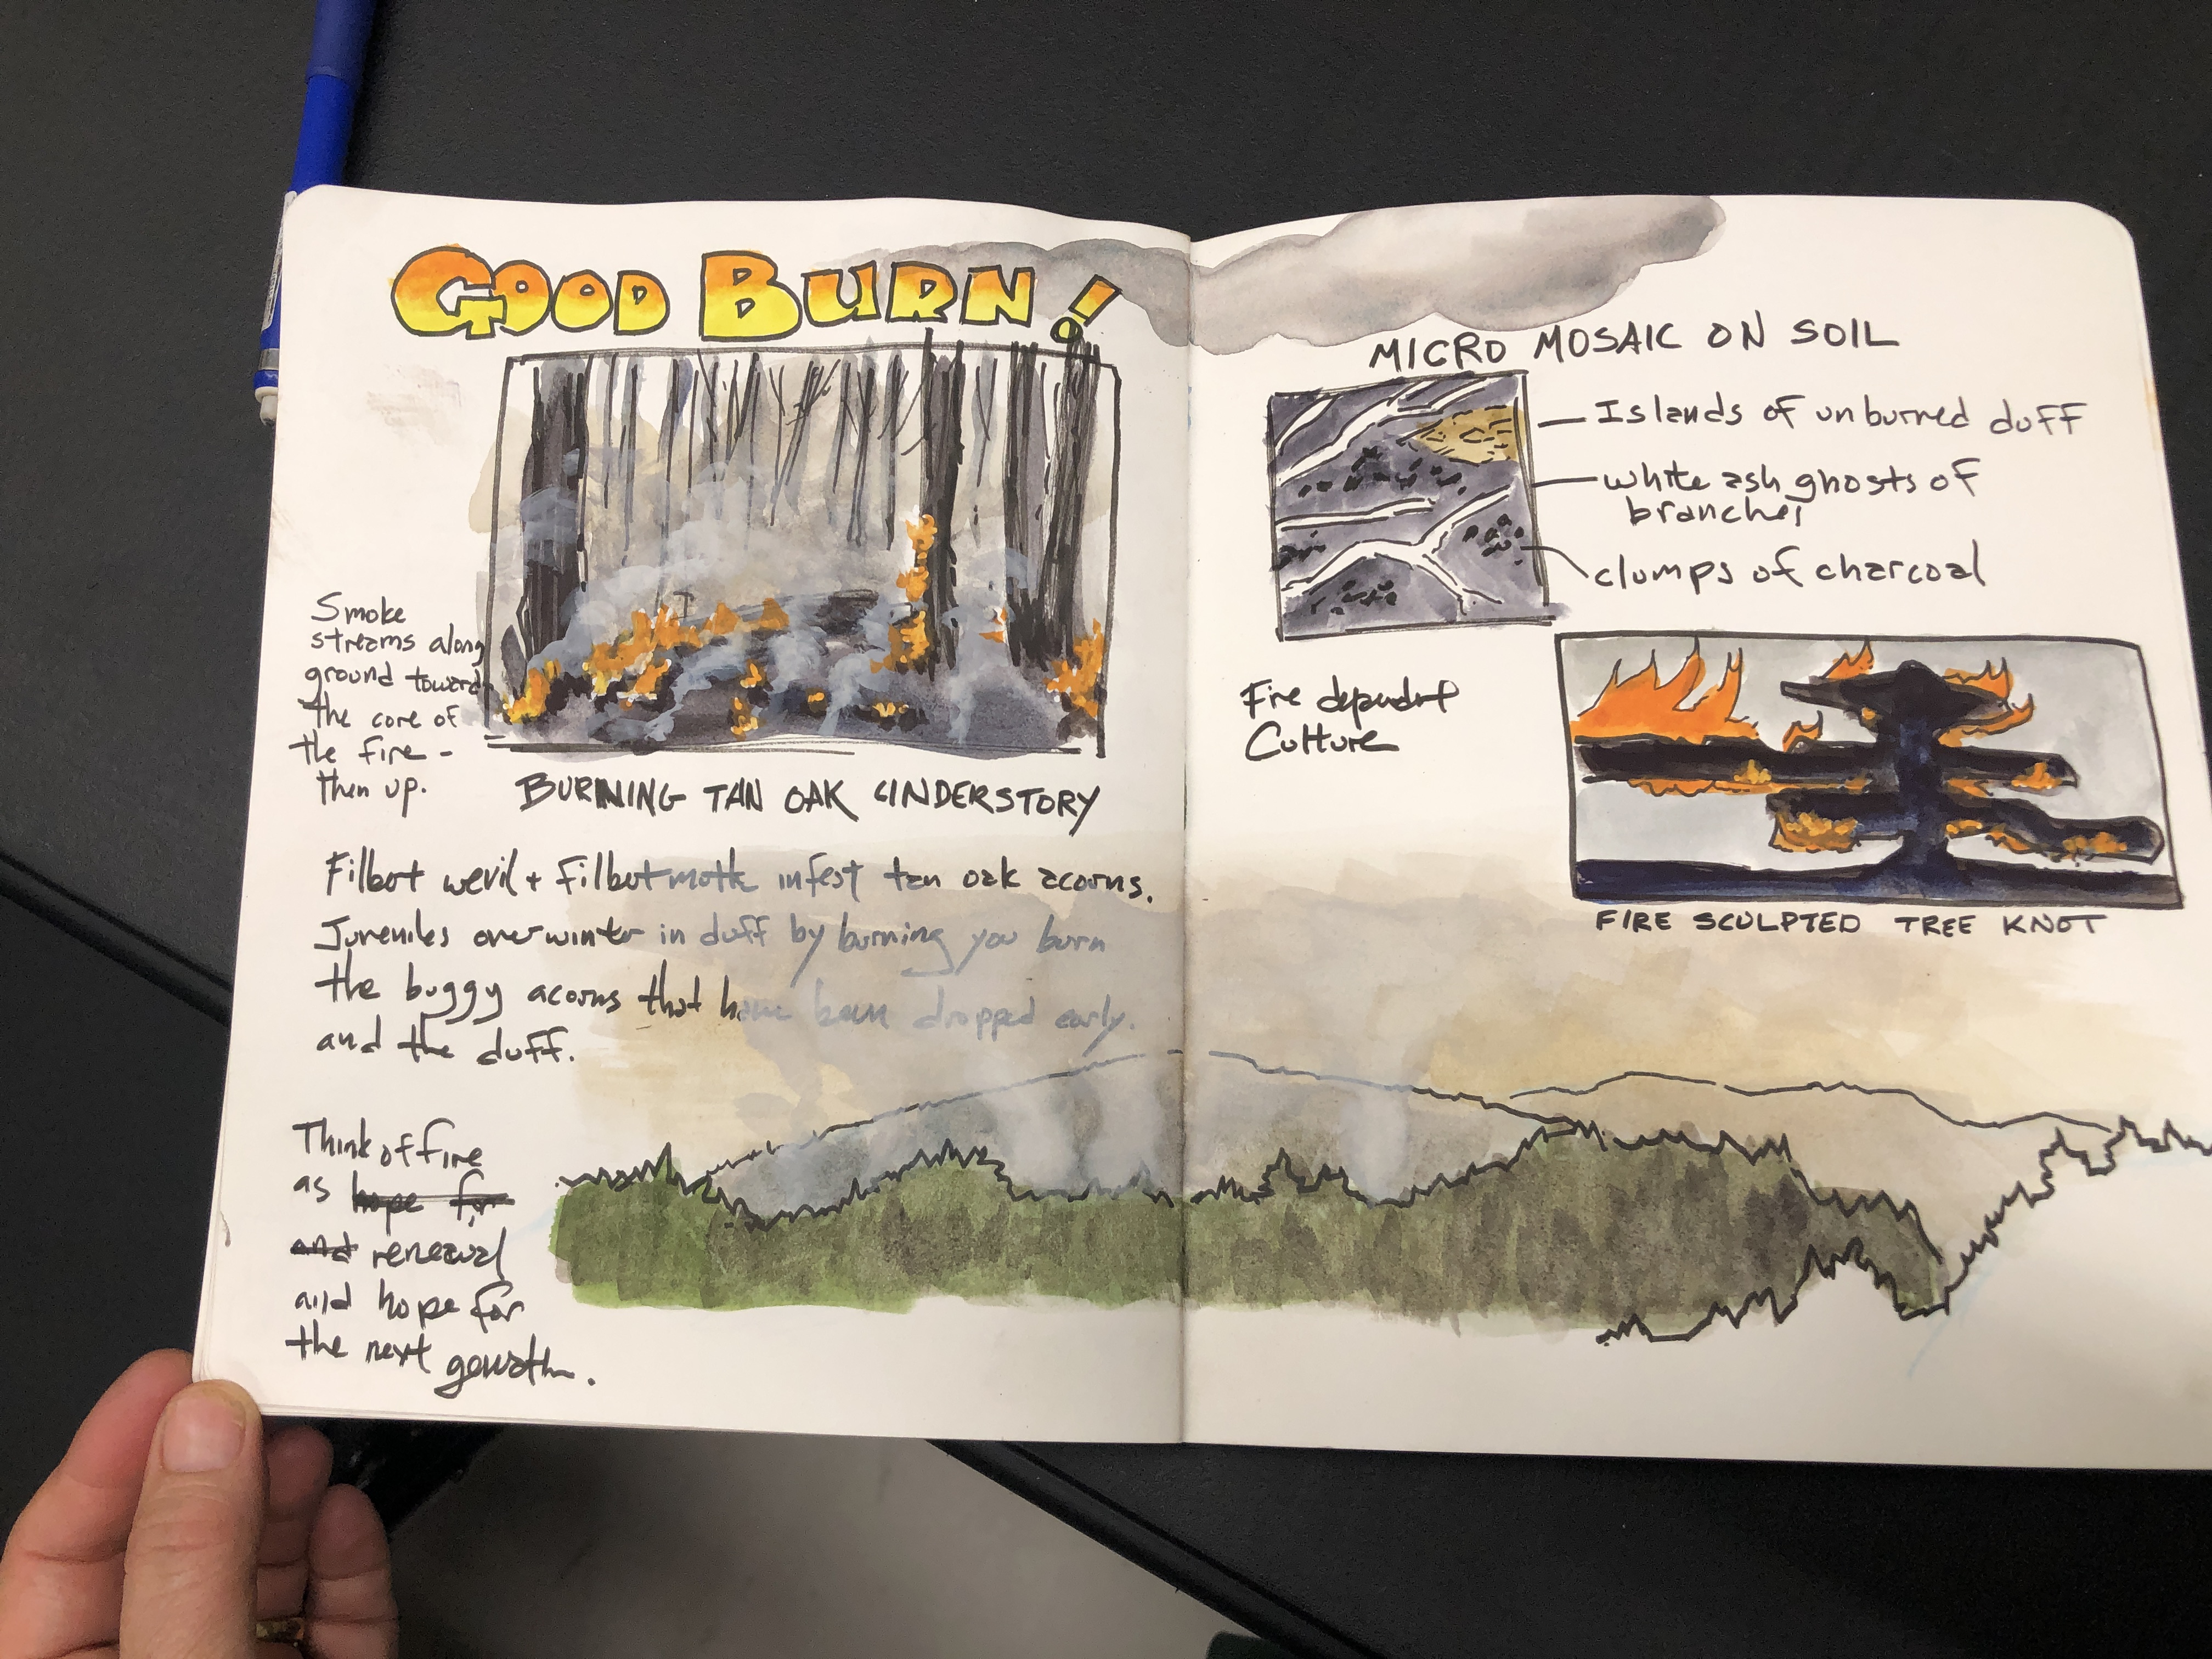 GOOD BURN!
Smoke
streams along
ground toward
the core of
the fire -
then up.
BURNING TAN OAK UNDERSTORY
Filbot wevil + filbot moth infest tan oak acorns.
Juveniles overwinter in duff by burning you burn
the buggy acorns that have been dropped early.
and the duff.
Think of fire
as hope for
and renewal
and hope for
the next gowath.
MICRO MOSAIC ON SOIL
Islands of unburred duff
white ash ghosts of
branches
clumps of charcoal
Fire dependent
Culture
FIRE SCULPTED TREE KNOT